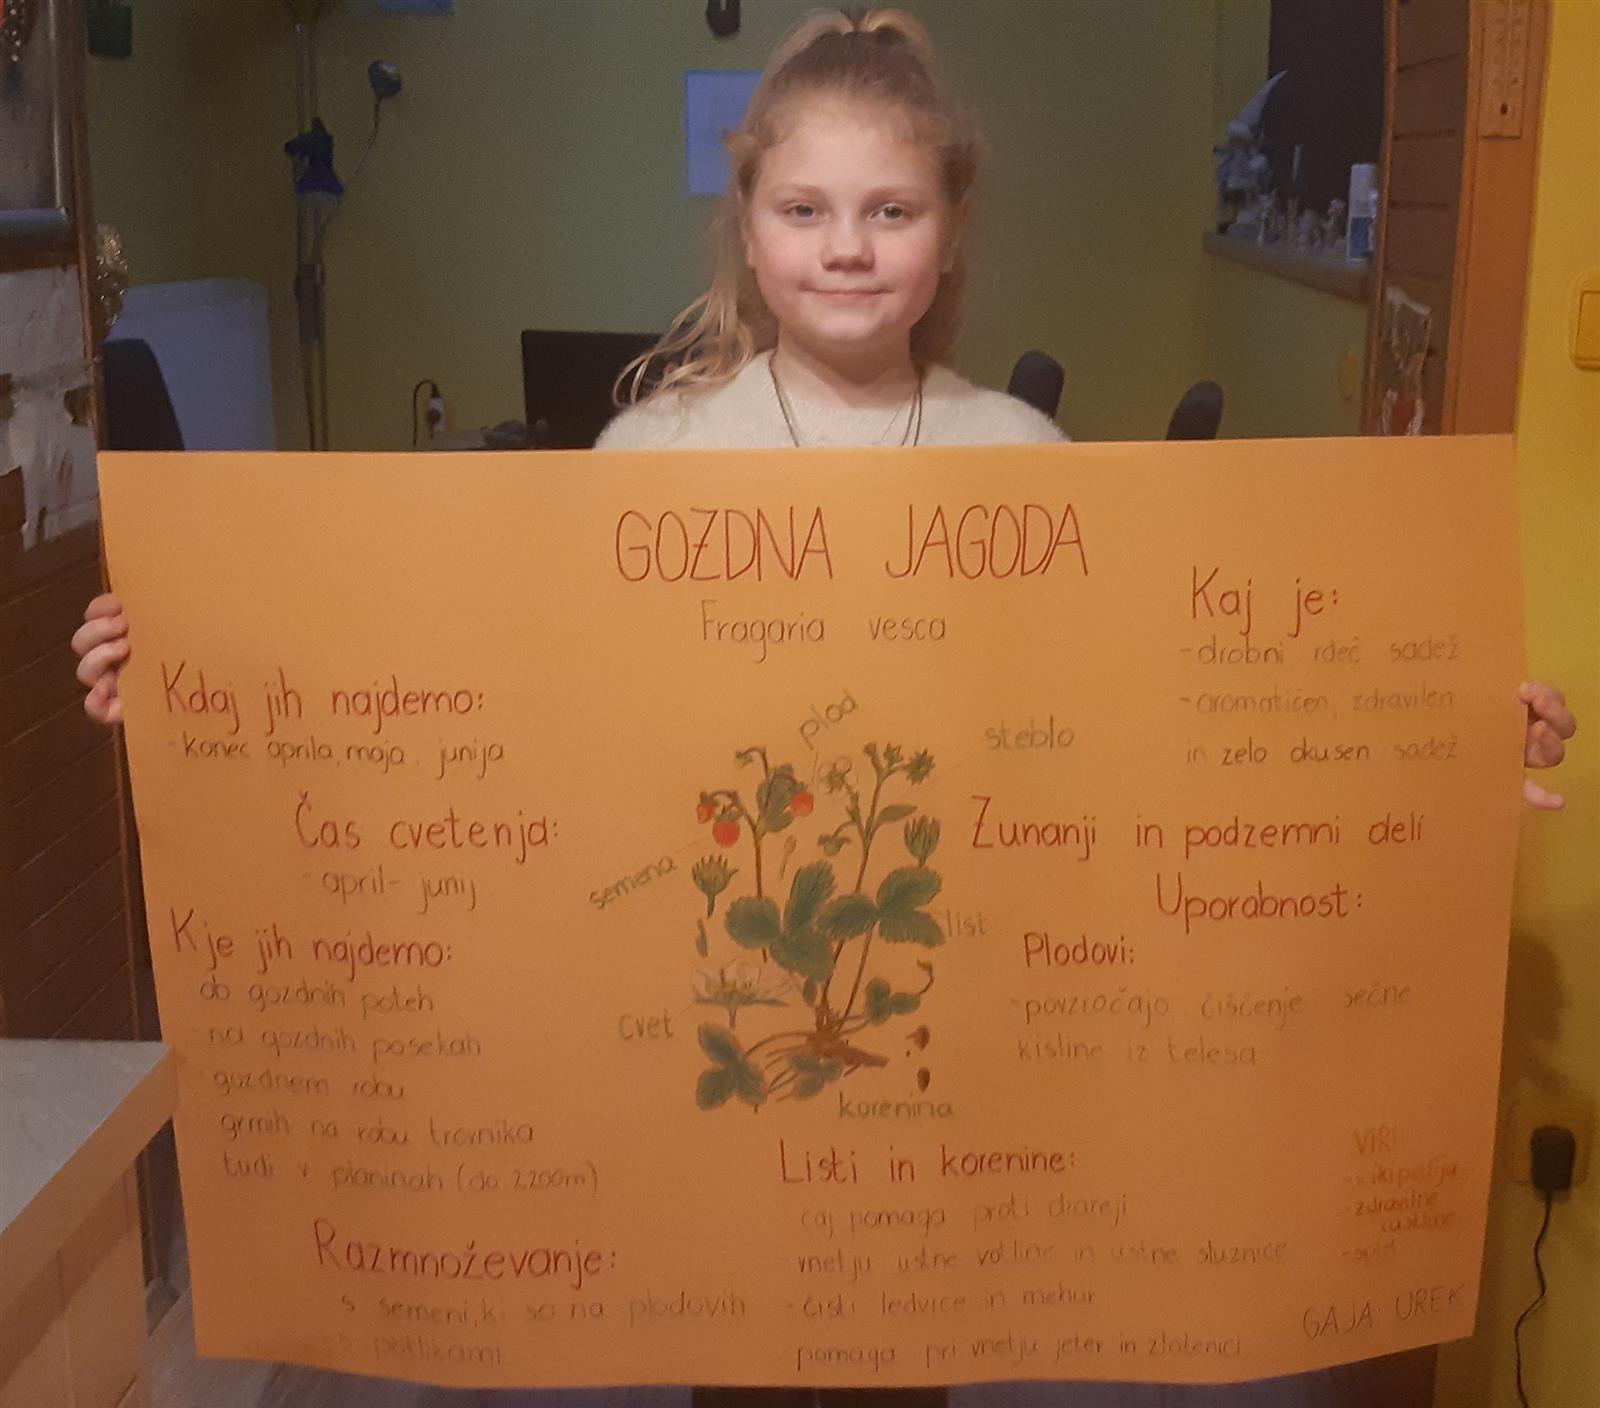 GOZDNA JAGODA
Fragaria vesca
Kdaj jih najdemo:
- konec aprila, maja, junija
Čas cvetenja:
- april - junij
Kje jih najdemo:
ob gozdnih poteh
na gozdnih posekah
gozdnem robu
grmih na robu travnika
tudi v planinah (do 2200m)
Razmnoževanje:
s semeni, ki so na plodovih
s pritlikami
plod
steblo
semena
list
cvet
korenina
Kaj je:
- drobni rdeč sadež
- aromatičen, zdravilen
in zelo okusen sadež
Zunanji in podzemni deli
Uporabnost:
Plodovi:
- povzročajo čiščenje sečne
kisline iz telesa
Listi in korenine:
čaj pomaga proti diareji
vnetju ustne votline in ustne sluznice
- čisti ledvice in mehur
pomaga pri vnetju jeter in zlatenici
VIRI:
- wikipedija
- zdravilne
rastline
- splet
GAJA UREK